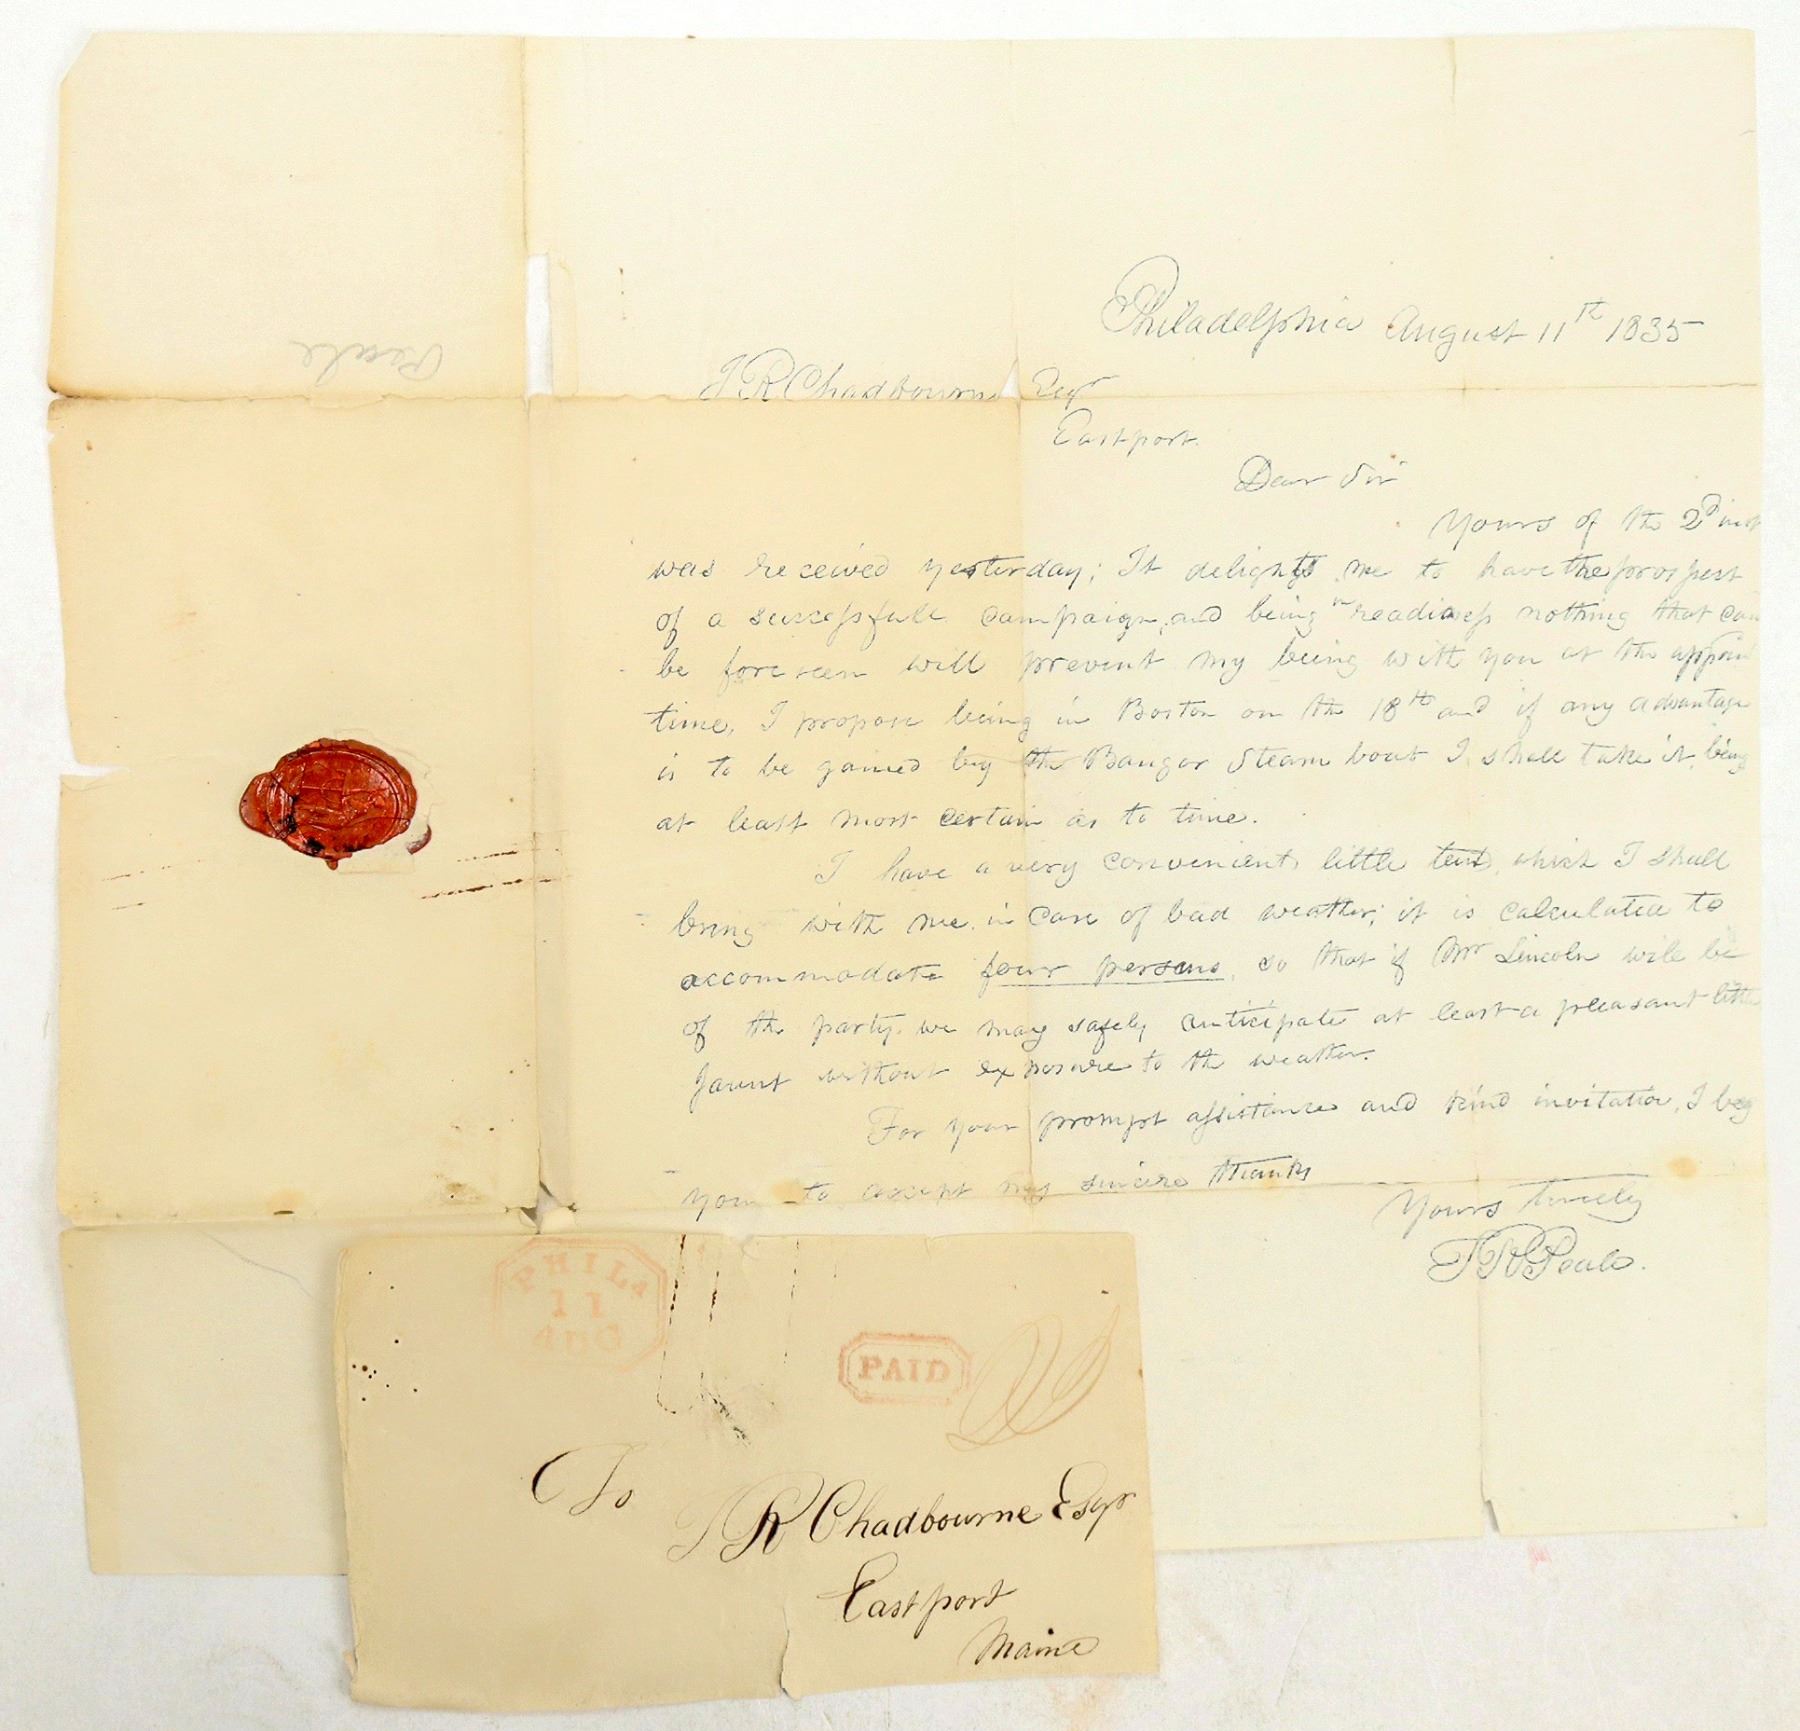 Philadelphia August 11th 1835
T R Chadbourne Esqr
Eastport.
Dear Sir
Yours of the 2d inst
was received yesterday; It delights me to have the prospect
of a successfull campaign, and being in readiness nothing that can
be foreseen will prevent my being with you at the appoin
time, I propose being in Boston on the 18th and if any advantage
is to be gained by the Bangor Steam boat I shall take it, being
at least most certain as to time.
I have a very convenient little tent, which I shall
bring with me in case of bad weather; it is calculated to
accommodate four persons, so that if Mr Lincoln will be
of the party, we may safely anticipate at least a pleasant little
jaunt without exposure to the weather.
For your prompt assistance and kind invitation, I beg
you to accept my sincere thanks
Yours truely
T R Peale.
Peale
PHILA
11
AUG
PAID
To
T R Chadbourne Esqr
Eastport
Maine